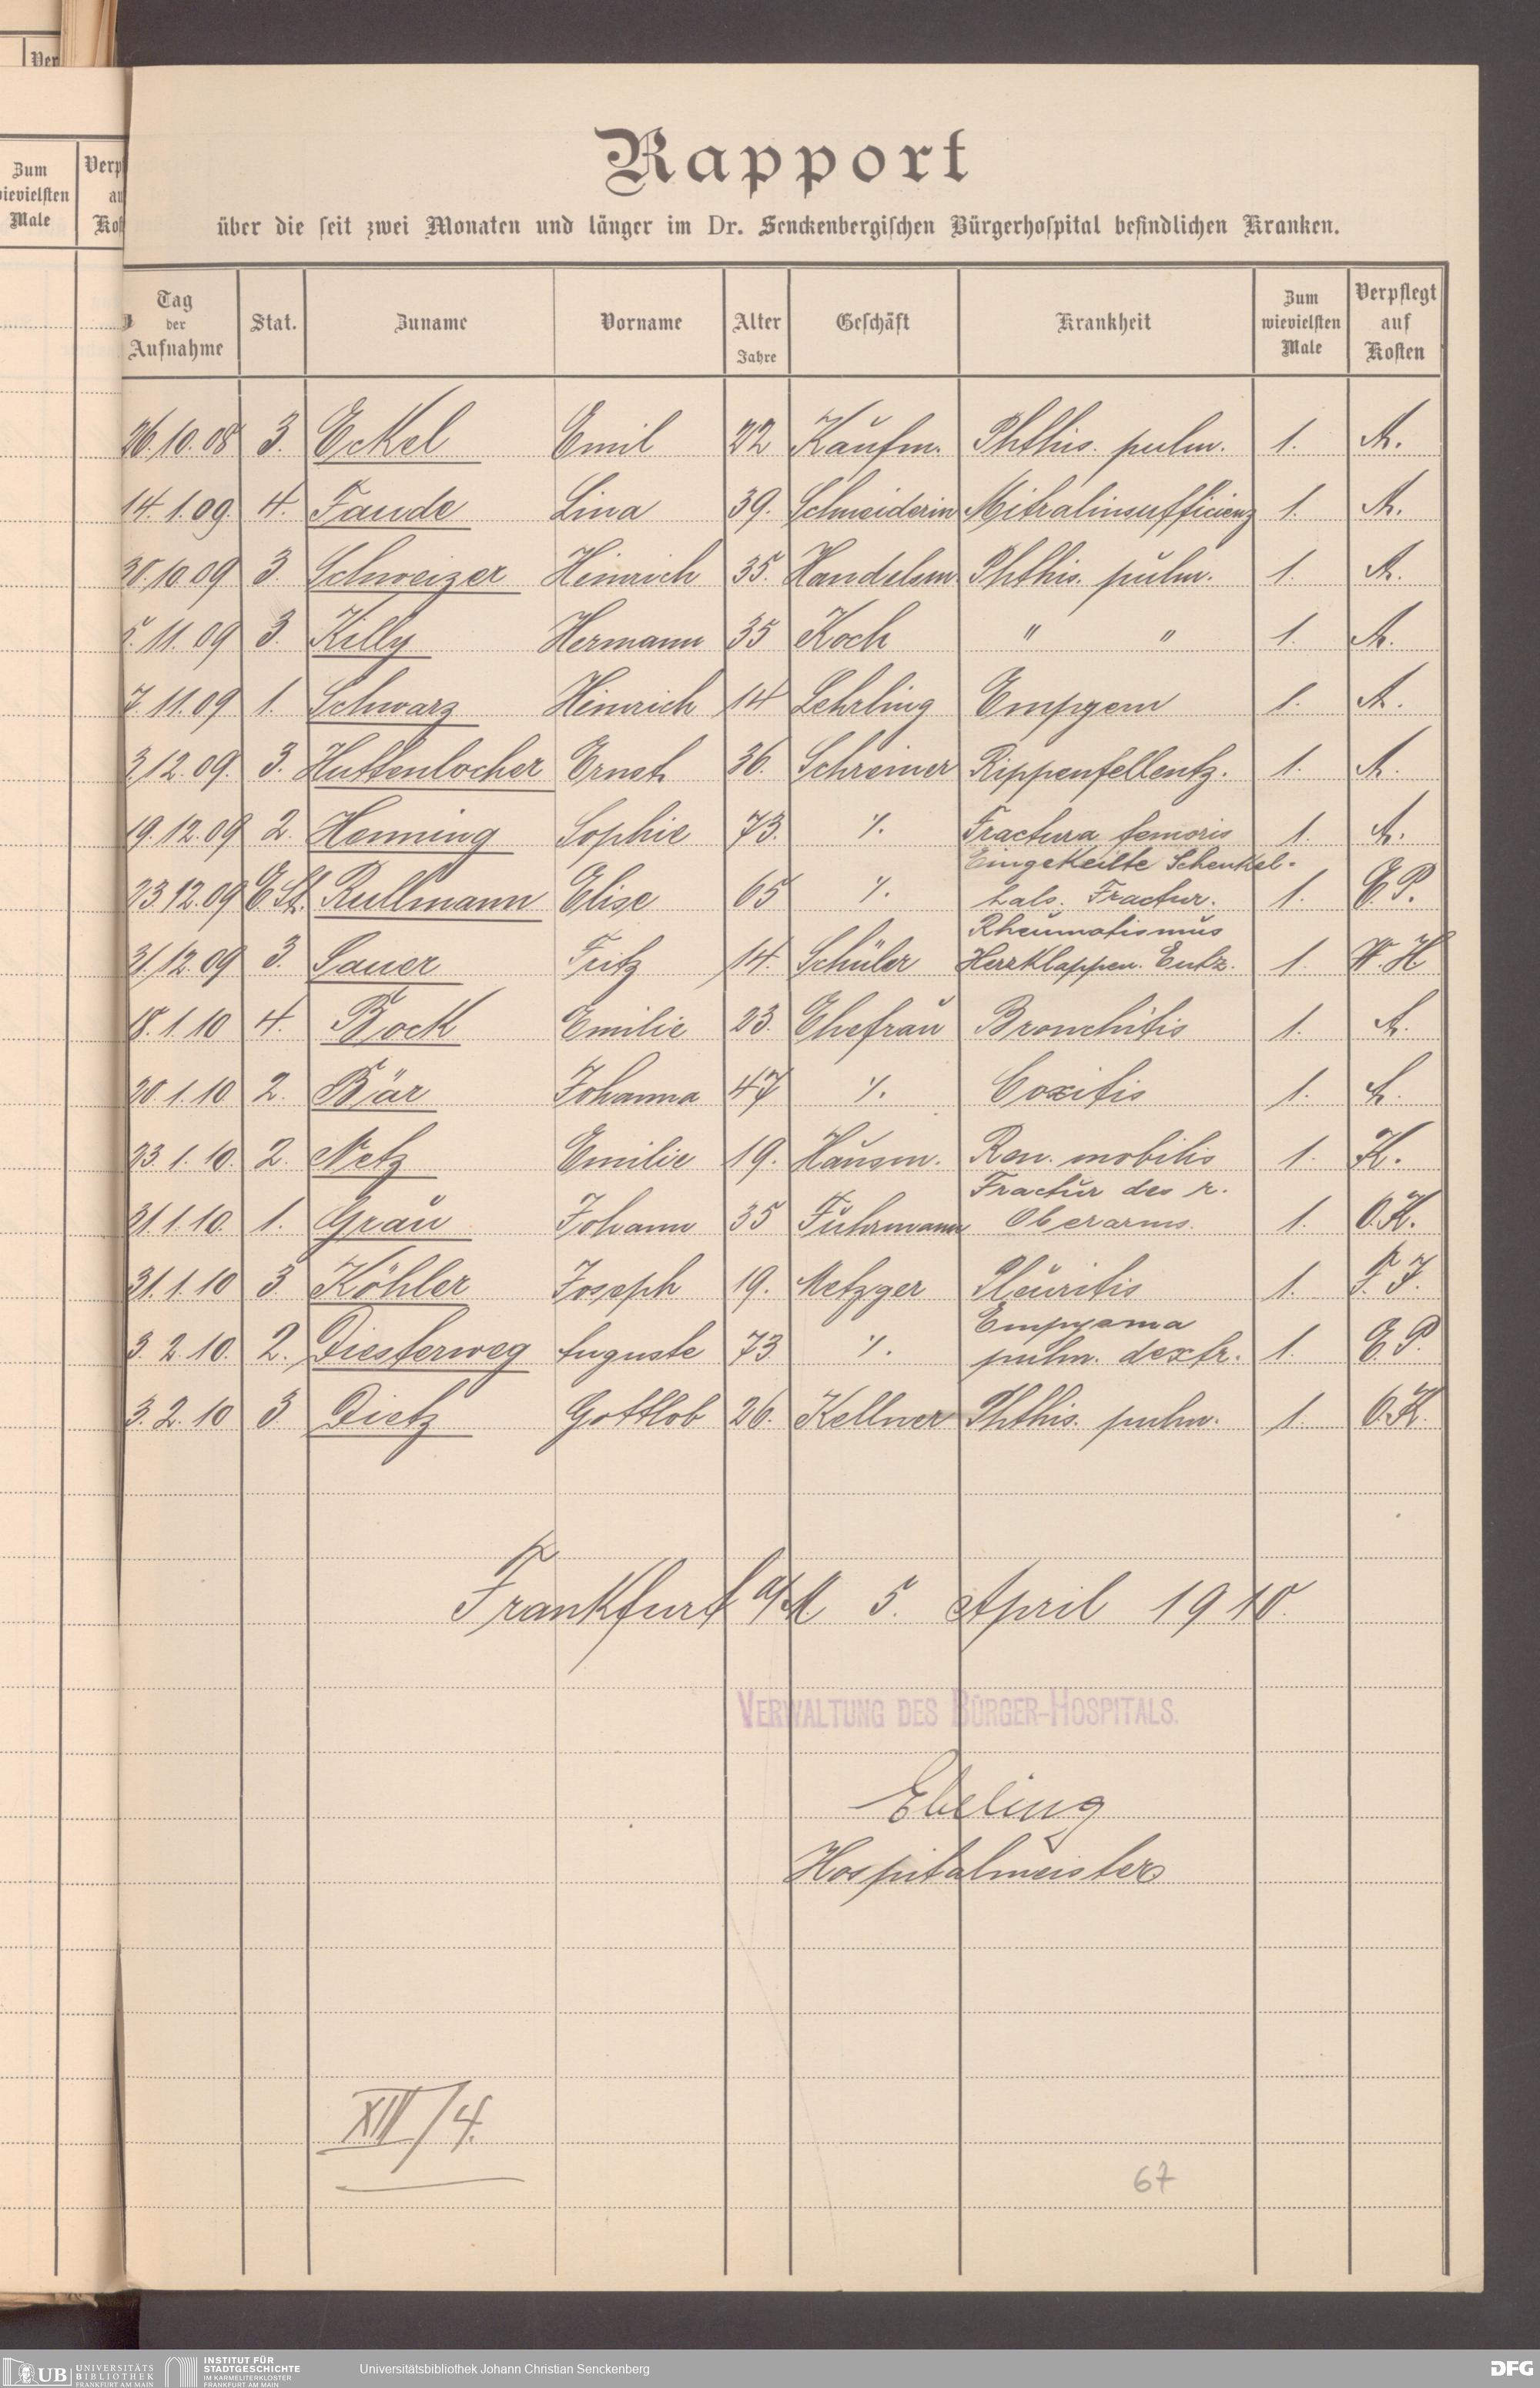 Ver
Zum
wievielsten
Male
Verp
au
Kos
Rapport
über die seit zwei Monaten und länger im Dr. Senckenbergischen Bürgerhospital befindlichen Kranken.
Tag der Aufnahme Stat. Zuname Vorname Alter Jahre Geschäft Krankheit Zum wievielsten Male Verpflegt auf Kosten
26.10.08 3. Eckel Emil 22 Kaufm. Phthis. pulm. 1. A.
14.1.09. 4. Faude Lina 39. Schneiderin Mitralinsufficienz 1. A.
30.10.09 3. Schweizer Heinrich 35. Handelsm. Phthis. pulm. 1. A.
5.11.09 3. Killy Hermann 35 Koch " " 1. A.
7.11.09 1. Schwarz Heinrich 14 Lehrling Empyem 1. A.
3.12.09. 3. Huttenlocher Ernst 36. Schreiner Rippenfellentz. 1. A.
19.12.09 2. Henning Sophie 73. ./. Fractura femoris 1. A.
Eingekeilte Schenkel-
23.12.09 E.St. Rullmann Elise 65 ./. hals. Fractur. 1. E.P.
Rheumatismus
31.12.09 3. Sauer Fritz 14. Schüler Herzklappen. Entz. 1. W.H.
18.1.10 4. Bock Emilie 23. Ehefrau Bronchitis 1. A.
20.1.10 2. Bär Johanna 47 ./. Coxitis 1. A.
23.1.10. 2. Netz Emilie 19. Hausm. Ren. mobilis 1. K.
Fractur des r.
31.1.10. 1. Grau Johann 35 Fuhrmann Oberarms. 1. O.K.
31.1.10 3 Köhler Joseph 19. Metzger Pleuritis 1. F.F.
Empyema
3.2.10. 2. Diesterweg Auguste 73 ./. pulm. dextr. 1. E.P.
3.2.10 3 Dietz Gottlob 26. Kellner Phthis. pulm. 1. O.K.
Frankfurt a/M 5. April 1910.
VERWALTUNG DES BÜRGER-HOSPITALS.
Ebeling
Hospitalmeister
XIV/4.
67
UB UNIVERSITÄTS BIBLIOTHEK FRANKFURT AM MAIN
INSTITUT FÜR STADTGESCHICHTE IM KARMELITERKLOSTER FRANKFURT AM MAIN
Universitätsbibliothek Johann Christian Senckenberg
DFG